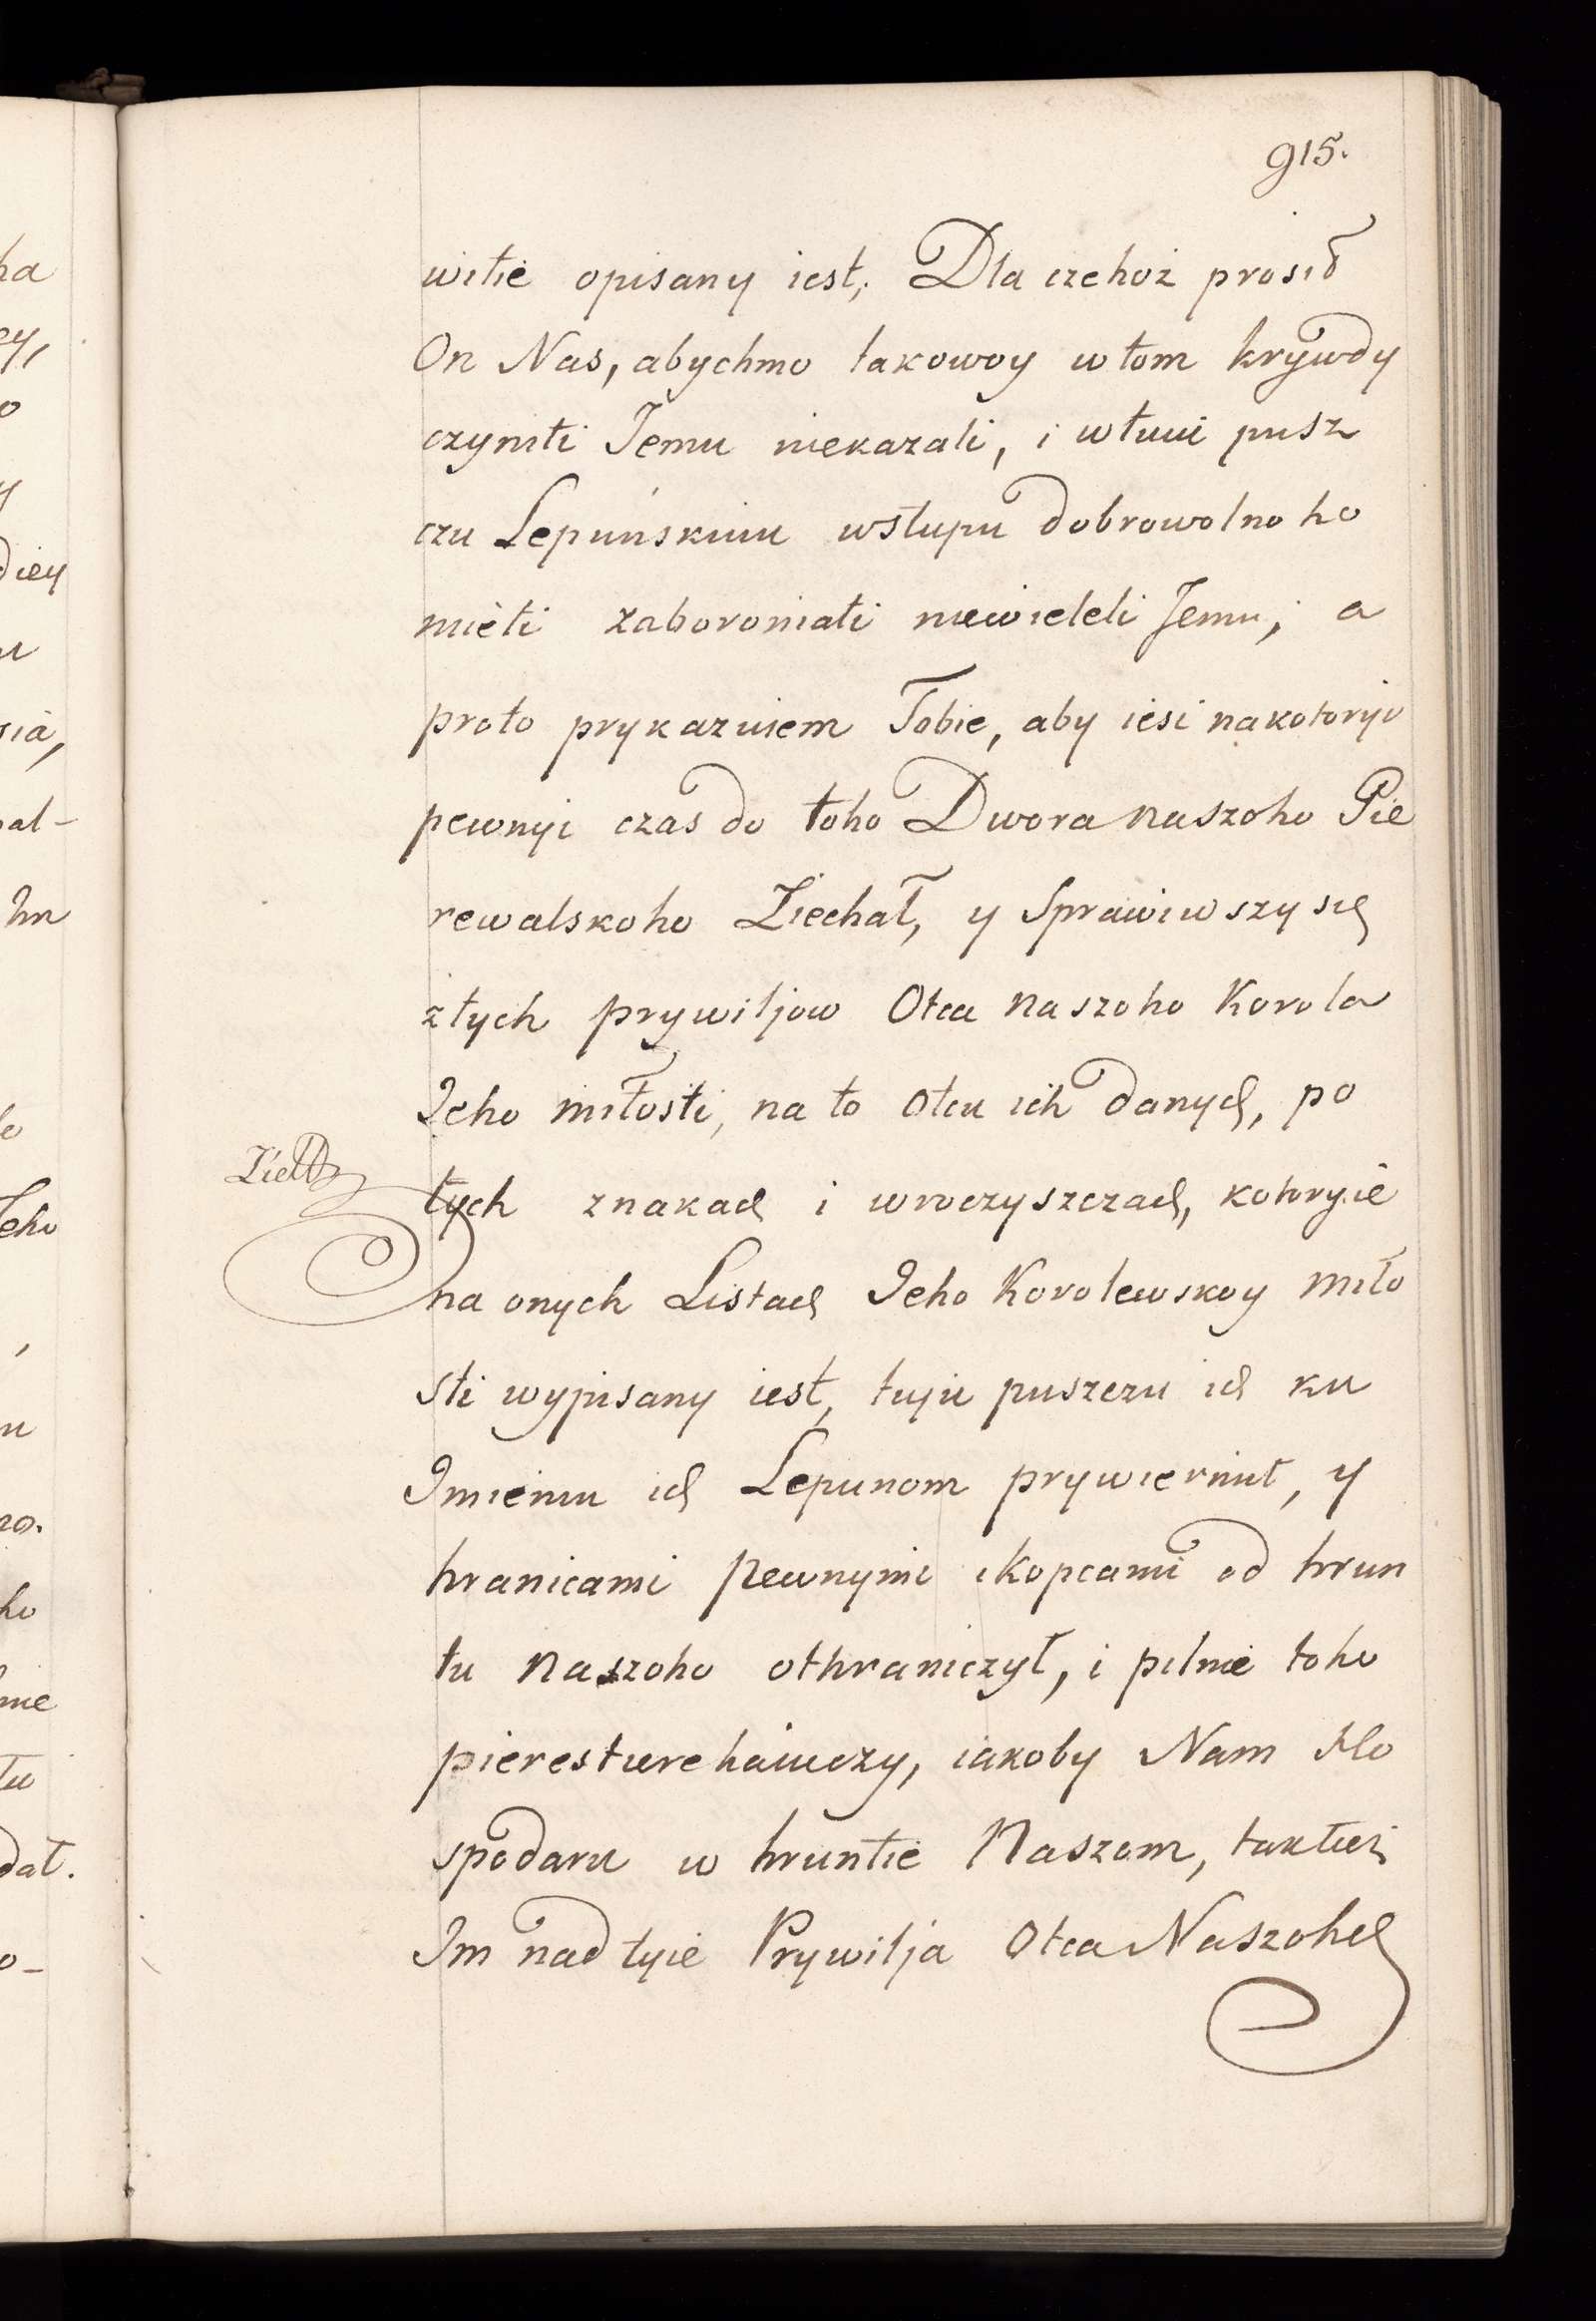 915.
witie opisany iest, Dla czehoż prosił
On Nas, abychmo takowoy w tom krywdy
czyniti Jemu niekazali, i w tuiu pusz
czu Lepuńskuiu wstupu dobrowolnoho
mieti zaboroniati niewieleli Jemu, a
proto prykazuiem Tobie, aby iesi nakotoryi
pewnyi czas do toho Dwora naszoho Pie
rewalskoho Ziechał, y Sprawiwszy się
z tych prywiljow Otca naszoho Korola
Jeho miłosti, na to otcu ich danych, po
tych znakach i wroczyszczach, kotoryie
na onych Listach Jeho Korolewskoy miło
sti wypisany iest, tuiu puszczu ich ku
Imieniu ich Lepunom prywiernuł, y
hranicami pewnymi i kopcami od hrun
tu naszoho othraniczył, i pilnie toho
pieresterehaiuczy, iakoby Nam Ho
spodaru w hruntie Naszom, taktież
Im nad tyie Prywilja Otca Naszoho